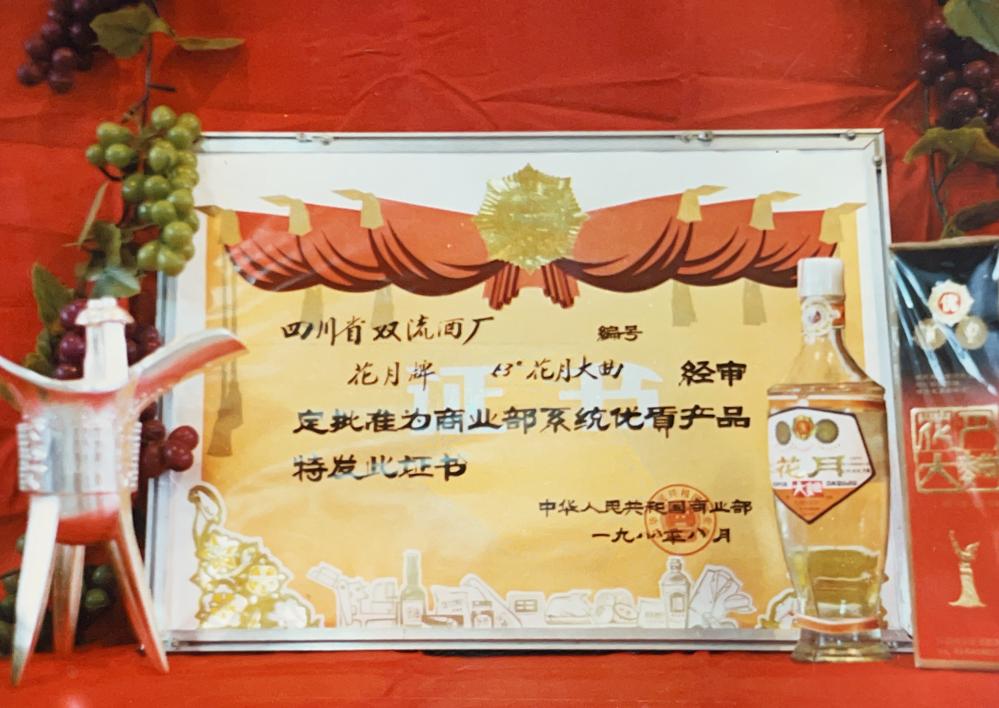 四川省双流酒厂 编号
花月牌 53°花月大曲 经审
定批准为商业部系统优质产品
特发此证书
证书
中华人民共和国商业部
一九八八年八月
花月
大曲
花月
大曲